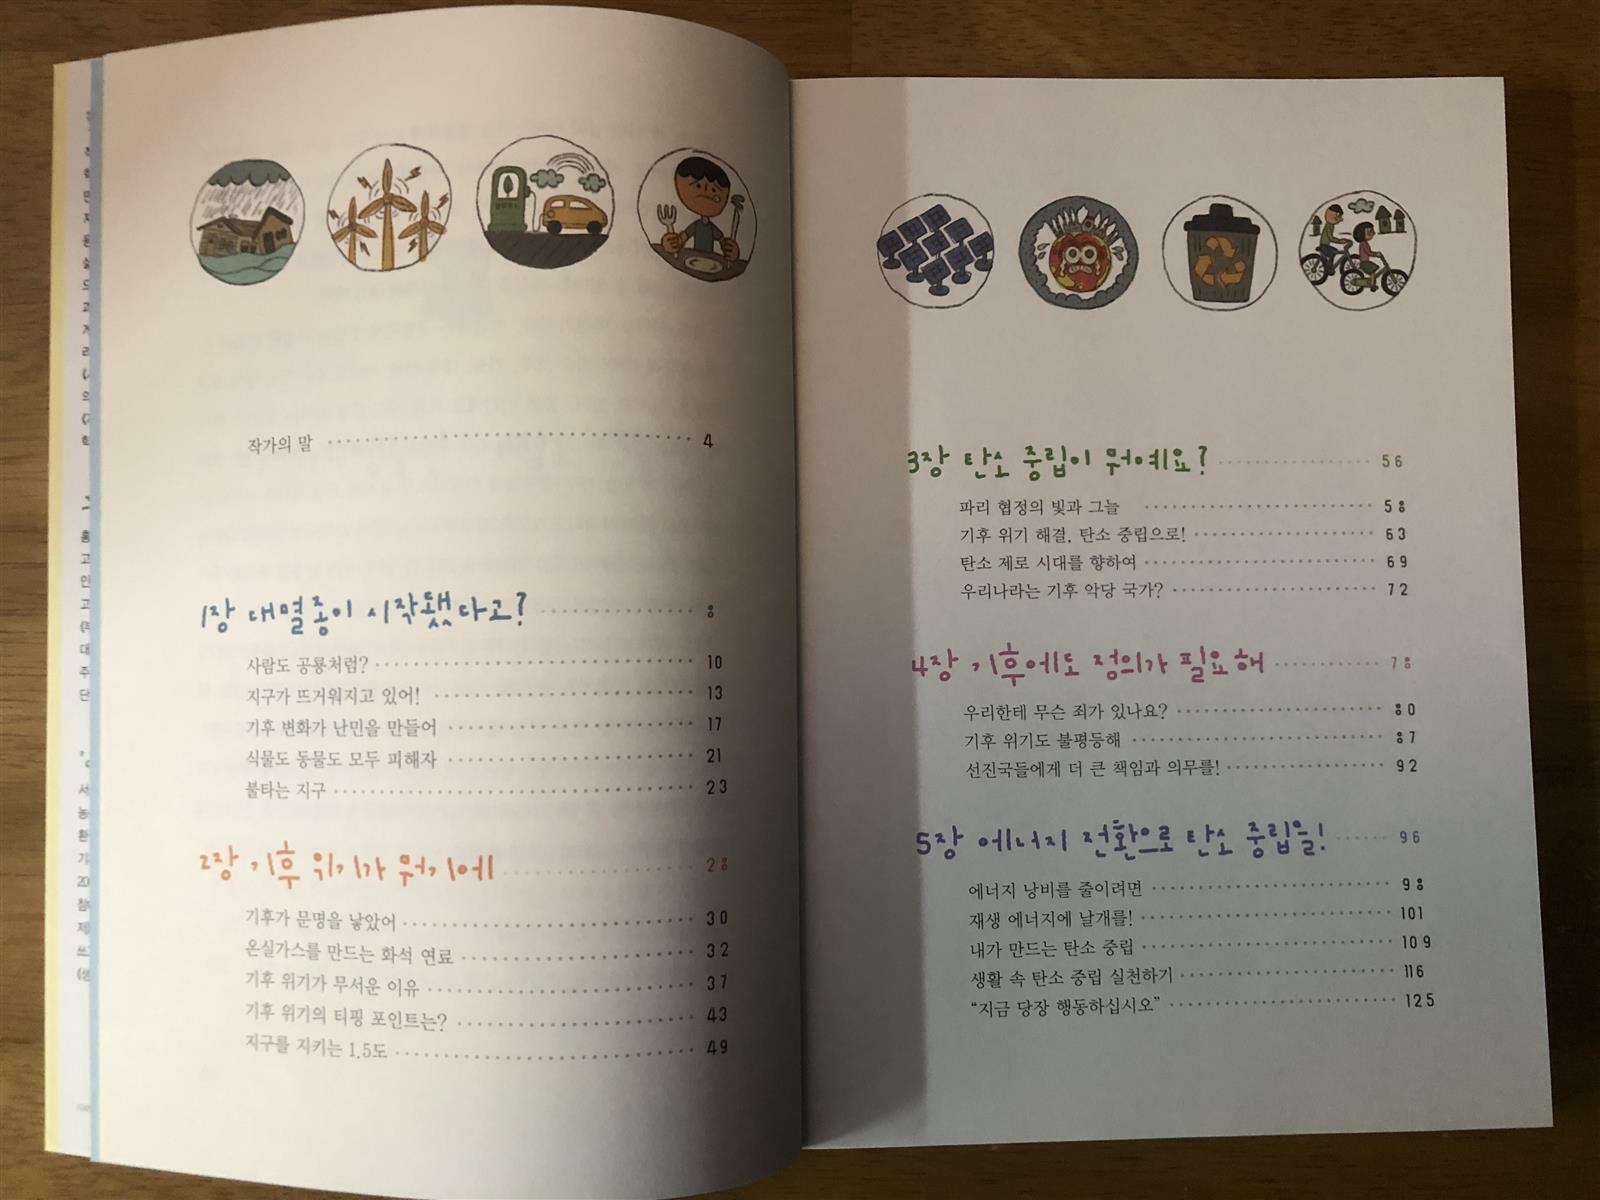 작가의 말 4
1장 대멸종이 시작됐다고? 8
사람도 공룡처럼? 10
지구가 뜨거워지고 있어! 13
기후 변화가 난민을 만들어 17
식물도 동물도 모두 피해자 21
불타는 지구 23
2장 기후 위기가 뭐기에 28
기후가 문명을 낳았어 30
온실가스를 만드는 화석 연료 32
기후 위기가 무서운 이유 37
기후 위기의 티핑 포인트는? 43
지구를 지키는 1.5도 49
3장 탄소 중립이 뭐예요? 56
파리 협정의 빛과 그늘 58
기후 위기 해결, 탄소 중립으로! 63
탄소 제로 시대를 향하여 69
우리나라는 기후 악당 국가? 72
4장 기후에도 정의가 필요해 78
우리한테 무슨 죄가 있나요? 80
기후 위기도 불평등해 87
선진국들에게 더 큰 책임과 의무를! 92
5장 에너지 전환으로 탄소 중립을! 96
에너지 낭비를 줄이려면 98
재생 에너지에 날개를! 101
내가 만드는 탄소 중립 109
생활 속 탄소 중립 실천하기 116
“지금 당장 행동하십시오” 125